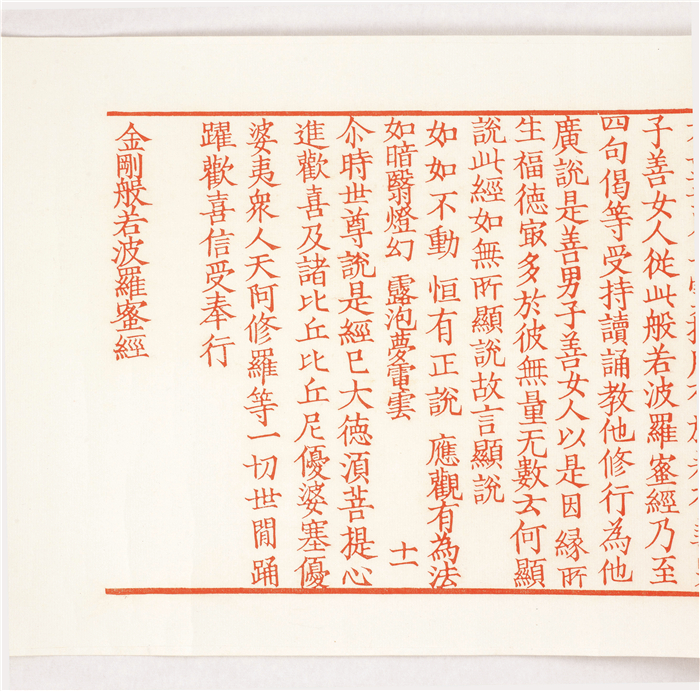 子善女人從此般若波羅蜜經乃至
四句偈等受持讀誦教他修行為他
廣說是善男子善女人以是因緣所
生福德㝡多於彼無量无數云何顯
說此經如無所顯說故言顯說
如如不動　恒有正說　應觀有為法
如暗翳燈幻　露泡夢電雲　十一
尒時世尊說是經已大德湏菩提心
進歡喜及諸比丘比丘尼優婆塞優
婆夷衆人天阿修羅等一切世閒踊
躍歡喜信受奉行
金剛般若波羅蜜經